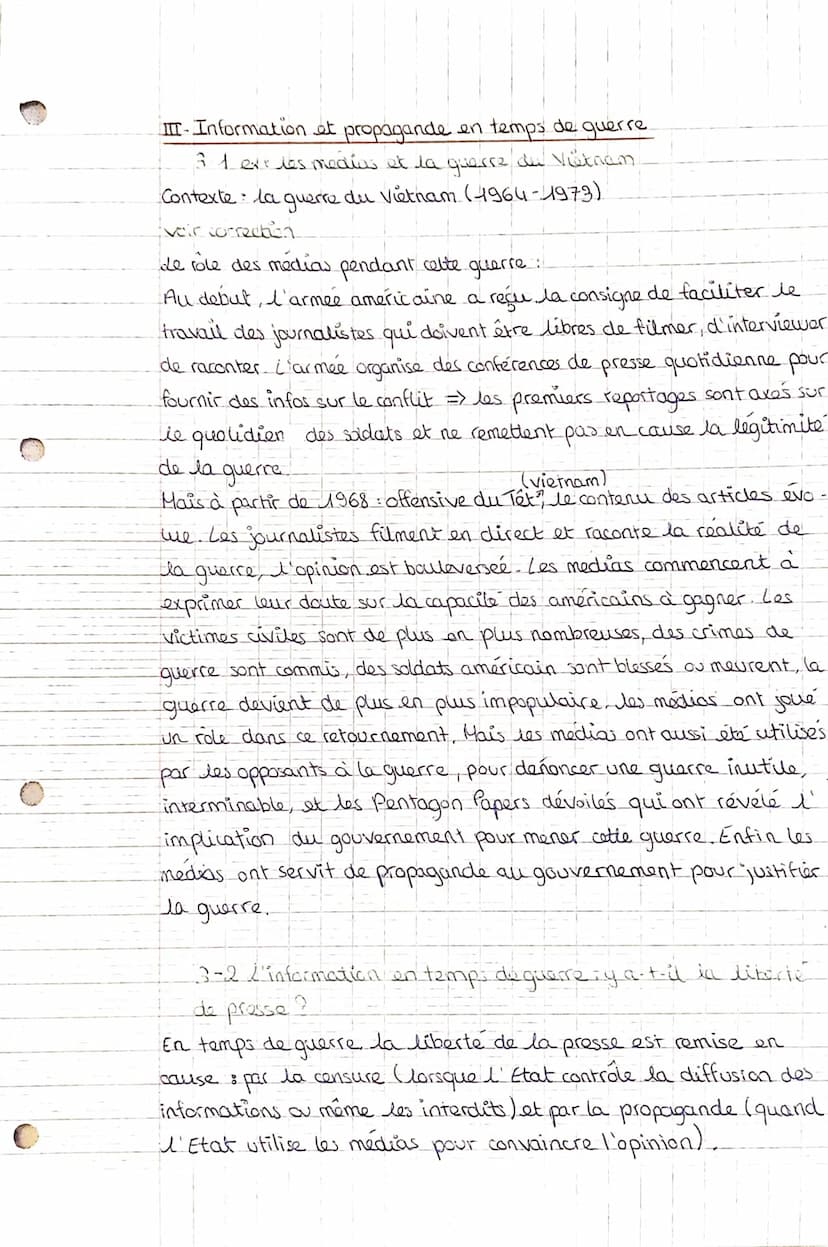 III - Information et propagande en temps de guerre
3 1 ex: les medias et la guerre du Viêtnam
Contexte : la guerre du Viêtnam (1964-1973)
voir correction
Le rôle des médias pendant cette guerre :
Au debut, l'armée américaine a reçu la consigne de faciliter le
travail des journalistes qui doivent être libres de filmer, d'interviewer
de raconter. L'armée organise des conférences de presse quotidienne pour
fournir des infos sur le conflit => les premiers reportages sont axés sur
le quotidien des soldats et ne remettent pas en cause la légitimité
de la guerre
(vietnam)
Mais à partir de 1968 : offensive du Têt", le contenu des articles évo-
lue. Les journalistes filment en direct et raconte la réalité de
la guerre, l'opinion est bouleverseé. Les medias commencent à
exprimer leur doute sur la capacité des américains à gagner. Les
victimes civiles sont de plus en plus nombreuses, des crimes de
guerre sont commis, des soldats américain sont blessés ou meurent, la
guerre devient de plus en plus impopulaire. les médias ont joué
un rôle dans ce retournement. Mais les médias ont aussi été utilisés
par les opposants à la guerre, pour dénoncer une guerre inutile,
interminable, et les Pentagon Papers dévoilés qui ont révélé l'
implication du gouvernement pour mener cette guerre. Enfin les
médias ont servit de propagande au gouvernement pour justifier
la guerre.
3-2 l'information en temps de guerre : y a-t-il la liberté
de presse ?
En temps de guerre la liberté de la presse est remise en
cause : par la censure (lorsque l'Etat contrôle la diffusion des
informations ou même les interdits) et par la propagande (quand
l'Etat utilise les médias pour convaincre l'opinion).